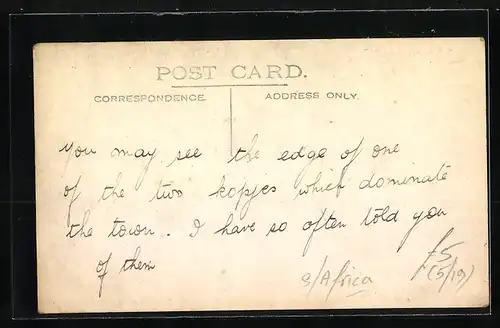 POST CARD.
CORRESPONDENCE. ADDRESS ONLY.
You may see the edge of one
of the two kopjes which dominate
the town. I have so often told you
of them
S/Africa
£5
(5/19)